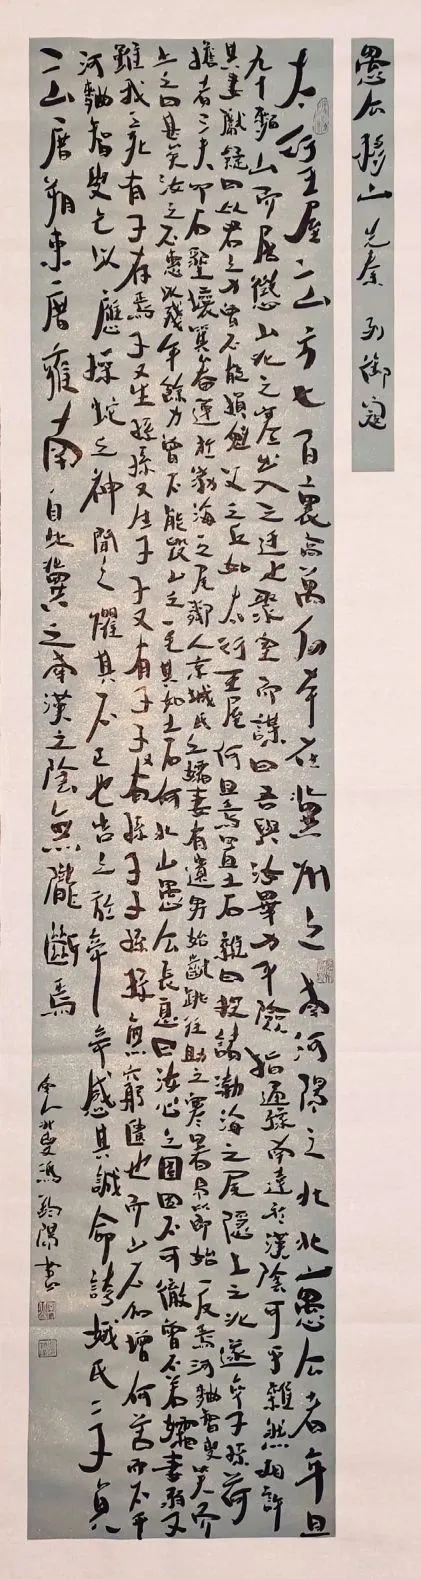 愚公移山 先秦 列御寇
太行王屋二山方七百裏高萬仞本在冀州之南河陽之北北山愚公者年且
九十麵山而居懲山北之塞出入之迂也聚室而謀曰吾與汝畢力平險指通豫南達於漢陰可乎雜然相許
其妻獻疑曰以君之力曾不能損魁父之丘如太行王屋何且焉置土石雜曰投諸渤海之尾隱土之北遂率子孫荷
擔者三夫叩石墾壤箕畚運於渤海之尾鄰人京城氏之孀妻有遺男始齔跳往助之寒暑易節始一反焉河麯智叟笑而
止之曰甚矣汝之不惠以殘年餘力曾不能毀山之一毛其如土石何北山愚公長息曰汝心之固固不可徹曾不若孀妻弱子
雖我之死有子存焉子又生孫孫又生子子又有子子又有孫子子孫孫無窮匱也而山不加增何苦而不平
河麯智叟亡以應操蛇之神聞之懼其不已也告之於帝帝感其誠命誇娥氏二子負
二山一厝朔東一厝雍南自此冀之南漢之陰無隴斷焉
北叟馮 陽書